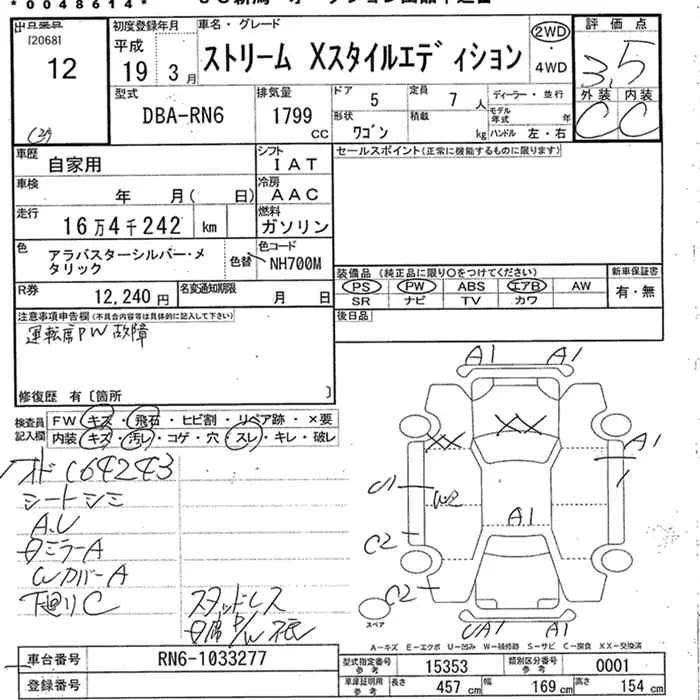 *0048614*
出品番号
[2068]
12
初度登録年月
平成
19年 3月
車名・グレード
ストリーム Xスタイルエディション
2WD
・
4WD
評価点
3.5
外装 内装
C C
型式
DBA-RN6
排気量
1799
CC
ドア
5
定員
7人
形状
ワゴン
積載
kg
ディーラー・並行
モデル年式 年
ハンドル 左・右
車歴
自家用
シフト
IAT
セールスポイント(正常に機能するものに限ります)
車検
年 月( 日)
冷房
AAC
走行
16万4千242 km
燃料
ガソリン
色
アラバスターシルバー・メタリック
色替
色コード
NH700M
装備品(純正品に限り○をつけてください)
PS PW ABS エアB AW
SR ナビ TV カワ
新車保証書
有・無
R券
12,240円
名変通知期限
月 日
後日品
注意事項申告欄(不具合内容等は具体的に記入して下さい)
運転席PW故障
修復歴 有〔箇所 〕
検査員記入欄
FW キズ・飛石・ヒビ割・リペア跡・×要
内装 キズ・汚レ・コゲ・穴・スレ・キレ・破レ
オド164243
シートシミ
A.U
ミラーA
WカバーA
下廻りC
スタッドレス
A1 A1
XX
XX
A1
U1
W2
A1
C2
C2
UA1 A1
スペア
A-キズ E-エクボ U-凹み W-補修跡 S-サビ C-腐食 XX-交換済
車台番号
RN6-1033277
登録番号
型式指定番号参考
15353
類別区分番号参考
0001
車庫証明用参考
長さ 457cm 幅 169cm 高さ 154cm